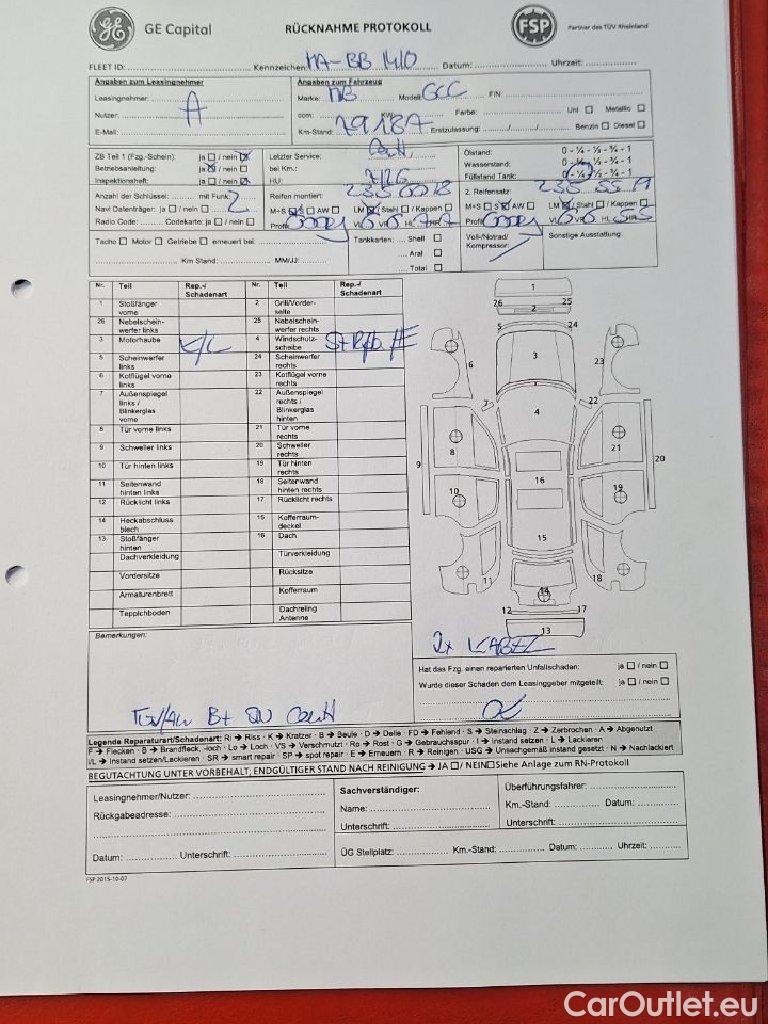 GE Capital RÜCKNAHME PROTOKOLL FSP Partner des TÜV Rheinland
FLEET ID: Kennzeichen: MA-BB 1410 Datum: Uhrzeit:
Angaben zum Leasingnehmer Angaben zum Fahrzeug
Leasingnehmer: Marke: MB Modell: GLC FIN:
Nutzer: A com: KW: Farbe: Uni Metallic
E-Mail: Km-Stand: 79187 Erstzulassung: Benzin Diesel
ZB Teil 1 (Fzg.-Schein): ja / nein Letzter Service: Ölstand: 0 - ¼ - ½ - ¾ - 1
Betriebsanleitung: ja / nein bei Km.: Wasserstand: 0 - ¼ - ½ - ¾ - 1
Inspektionsheft: ja / nein HU: Füllstand Tank: 0 - ¼ - ½ - ¾ - 1
Anzahl der Schlüssel: mit Funk: 2 Reifen montiert: 235 60 18 2. Reifensatz: 235 55 19
Navi Datenträger: ja / nein M+S S AW LM Stahl / Kappen M+S S AW LM / Stahl / Kappen
Radio Code: Codekarte: ja / nein Profil VL VR HL HR Profil VL VR HL HR
Tacho Motor Getriebe erneuert bei: Tankkarten: Shell Voll-/Notrad/ Kompressor: Sonstige Ausstattung:
Aral
Km Stand: MM/JJ: Total
Nr. Teil Rep.-/ Schadenart Nr. Teil Rep.-/ Schadenart
1 Stoßfänger vorne 2 Grill/Vorderseite
26 Nebelscheinwerfer links 25 Nebelscheinwerfer rechts
3 Motorhaube 4 Windschutzscheibe
5 Scheinwerfer links 24 Scheinwerfer rechts
6 Kotflügel vorne links 23 Kotflügel vorne rechts
7 Außenspiegel links / Blinkerglas vorne 22 Außenspiegel rechts / Blinkerglas hinten
8 Tür vorne links 21 Tür vorne rechts
9 Schweller links 20 Schweller rechts
10 Tür hinten links 19 Tür hinten rechts
11 Seitenwand hinten links 18 Seitenwand hinten rechts
12 Rücklicht links 17 Rücklicht rechts
14 Heckabschlussblech 15 Kofferraumdeckel
13 Stoßfänger hinten 16 Dach
Dachverkleidung Türverkleidung
Vordersitze Rücksitze
Armaturenbrett Kofferraum
Teppichboden Dachreling Antenne
1
26 25
2
5 24
3
6 23
7 22
4
8 21
9 20
16
10 19
15
11 18
14
12 17
13
Bemerkungen: 2x KABEL
Hat das Fzg. einen reparierten Unfallschaden: ja / nein
Wurde dieser Schaden dem Leasinggeber mitgeteilt: ja / nein
Legende Reparaturart/Schadenart: RI → Riss · K → Kratzer · B → Beule · D → Delle · FD → Fehlend · S → Steinschlag · Z → Zerbrochen · A → Abgenutzt
F → Flecken · B → Brandfleck, -loch · Lo → Loch · VS → Verschmutzt · Ro → Rost · G → Gebrauchsspur · I → Instand setzen · L → Lackieren
I/L → Instand setzen/Lackieren · SR → smart repair · SP → spot repair · E → Erneuern · R → Reinigen · USG → Unsachgemäß instand gesetzt · Ni → Nachlackiert
BEGUTACHTUNG UNTER VORBEHALT; ENDGÜLTIGER STAND NACH REINIGUNG → JA / NEIN Siehe Anlage zum RN-Protokoll
Leasingnehmer/Nutzer: Sachverständiger: Überführungsfahrer:
Rückgabeadresse: Name: Km.-Stand: Datum:
Unterschrift: Unterschrift:
Datum: Unterschrift: ÜG Stellplatz: Km.-Stand: Datum: Uhrzeit:
FSP 2015-10-07
CarOutlet.eu